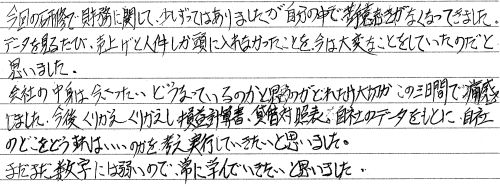 今回の研修で財務に関して、わずかではありましたが自分の中で苦手意識がなくなってきました。
データを見るたび、売上げと人件しか頭に入れなかったことを今は大変なことをしていたのだと
思いました。
会社の中身は今いったい どうなっているのかと思うのがどれだけ大切か この三日間で痛感
しました。今後 くりかえし くりかえし 損益計算書、貸借対照表、自社のデータをもとに、自社
のどこをどう すればいいのかを 考え 実行していきたいと思いました。
まだまだ 数字には弱いので、常に学んでいきたいと思いました。